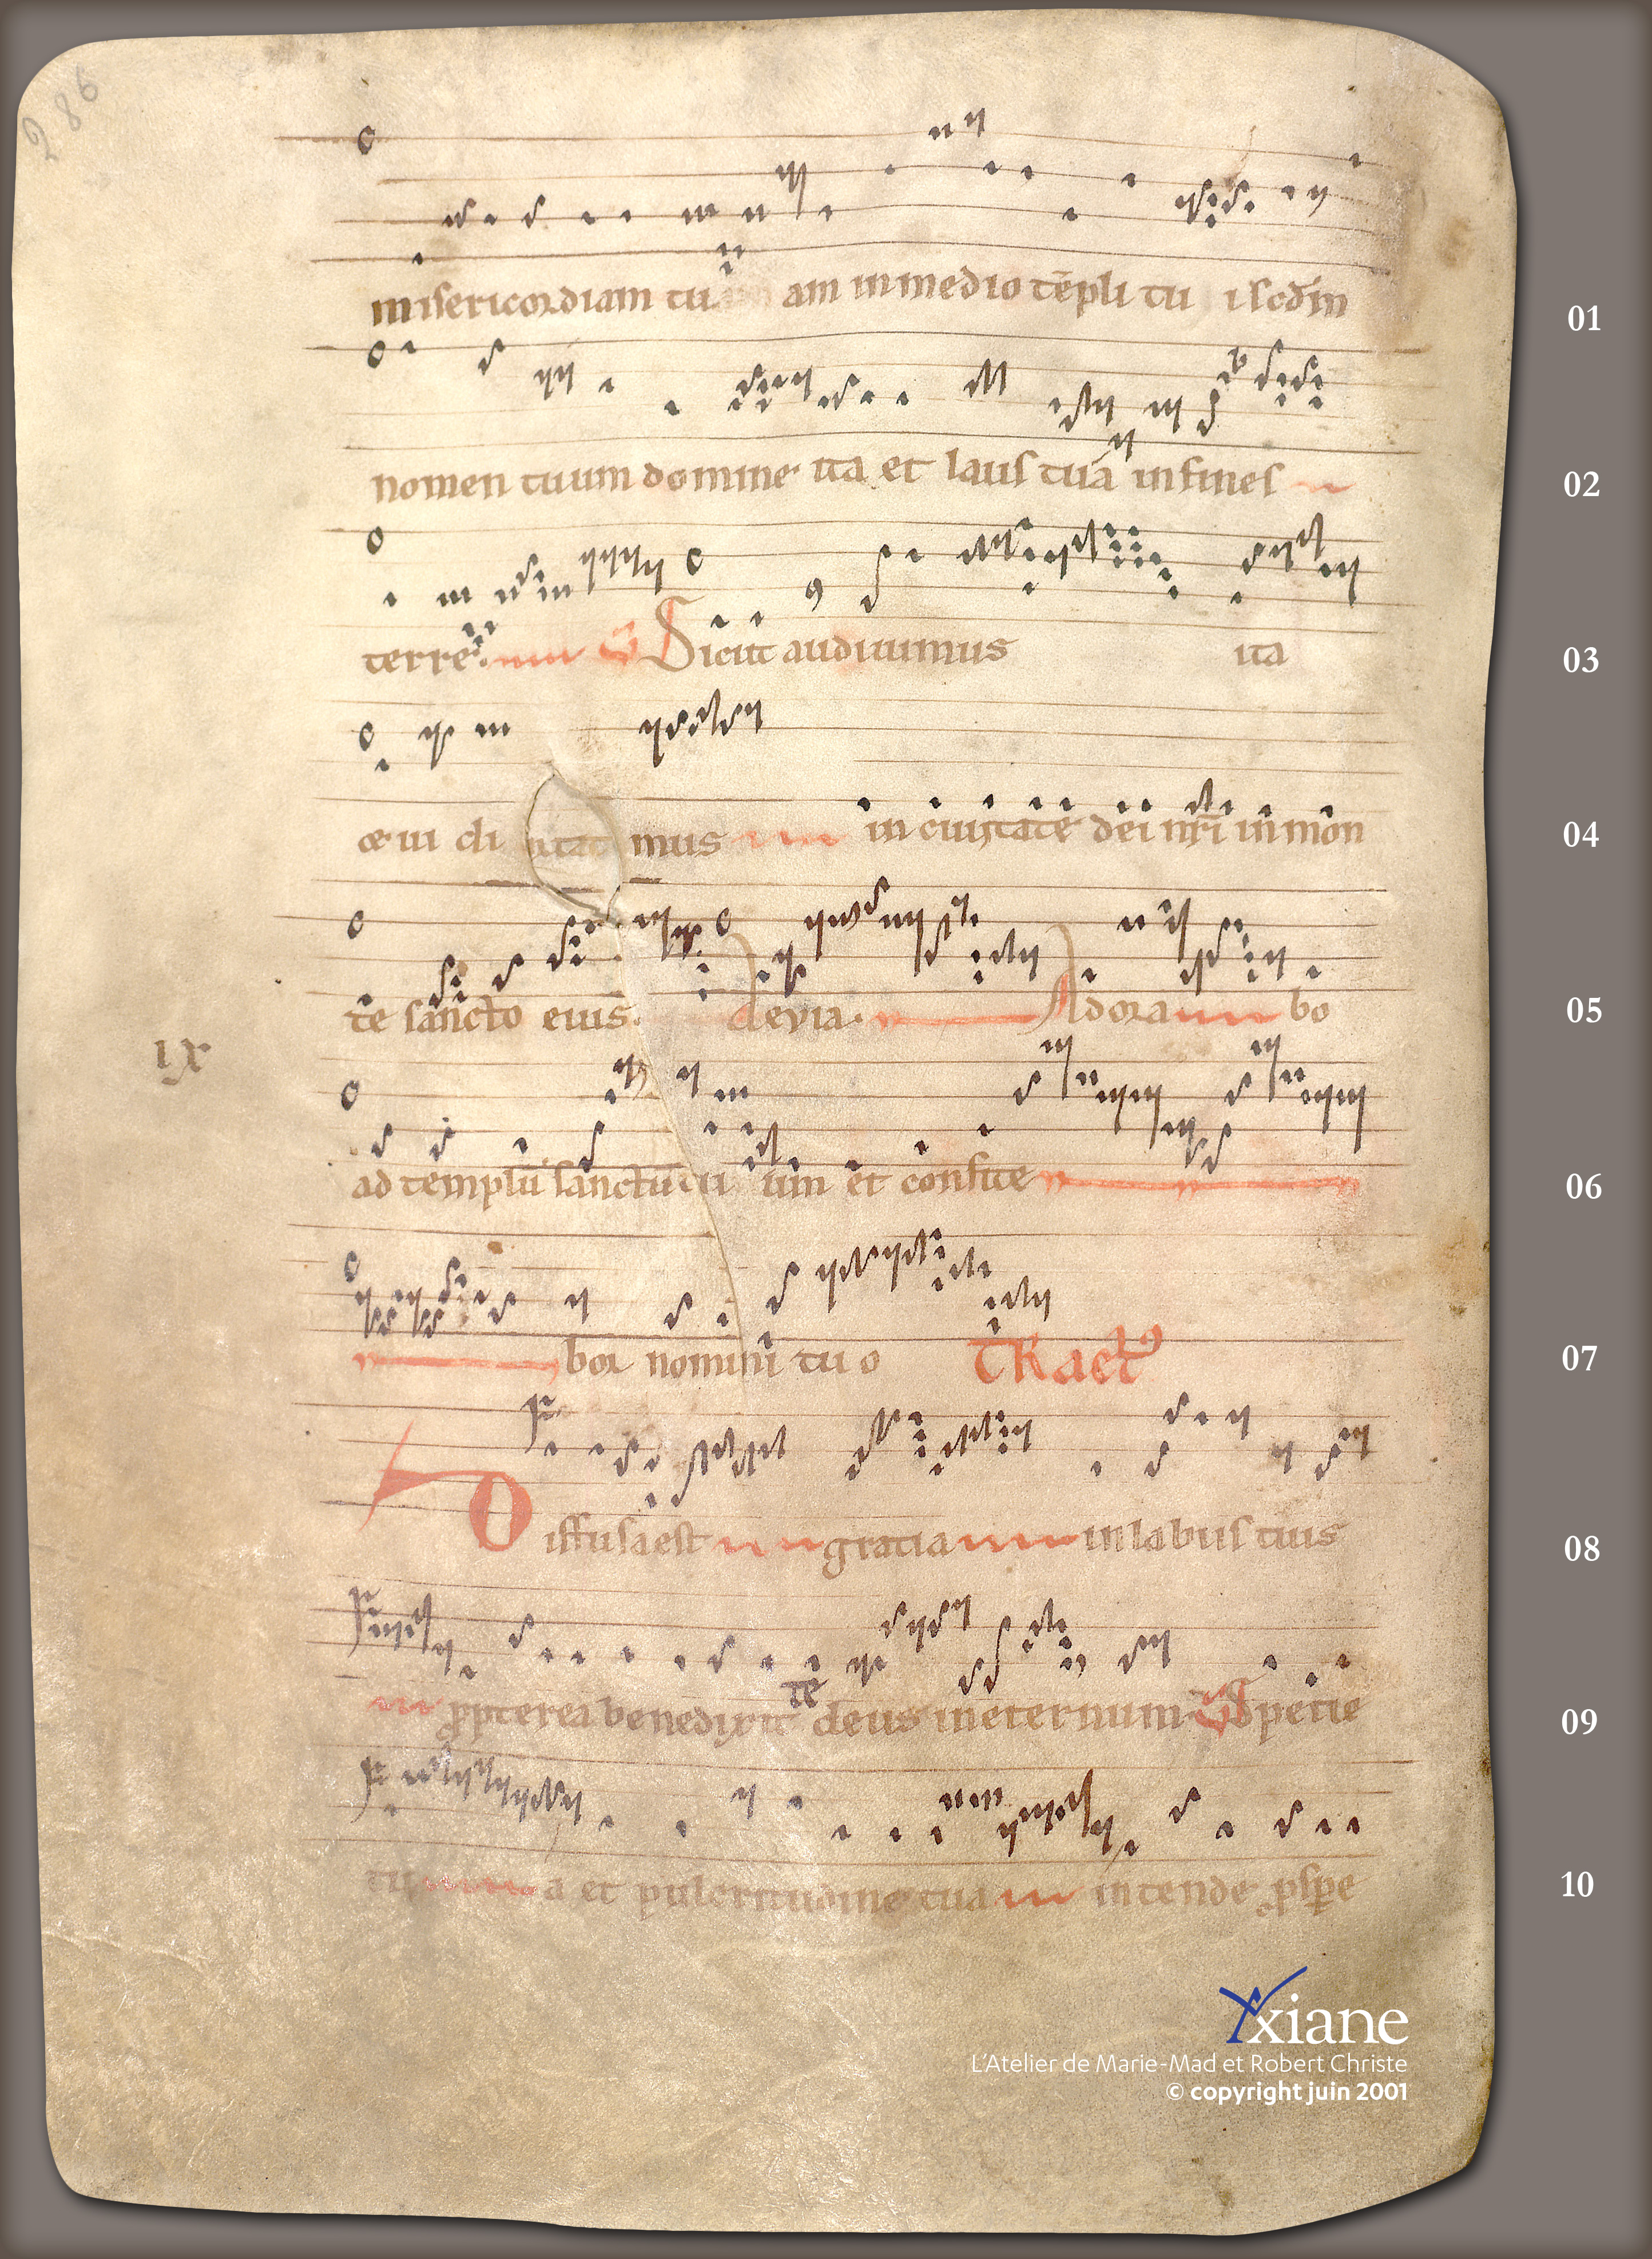 286
misericordiam tu am in medio tēpli tu i scdm 01
nomen tuum domine ita et laus tua in fines 02
terre. V Sicut audiuimus ita 03
et ui di mus in ciuitate dei nr̄i in mon 04
te sancto eius. aleuia. Adora bo 05
IX
ad templū sanctū tu um et confite 06
bor nomini tu o TRact9 07
Diffusa est gratia in labiis tuis 08
te
propterea benedixit deus in eternum V Specie 09
tu a et pulcritudine tua intende pspe 10
Yxiane
L'Atelier de Marie-Mad et Robert Christe
© copyright juin 2001